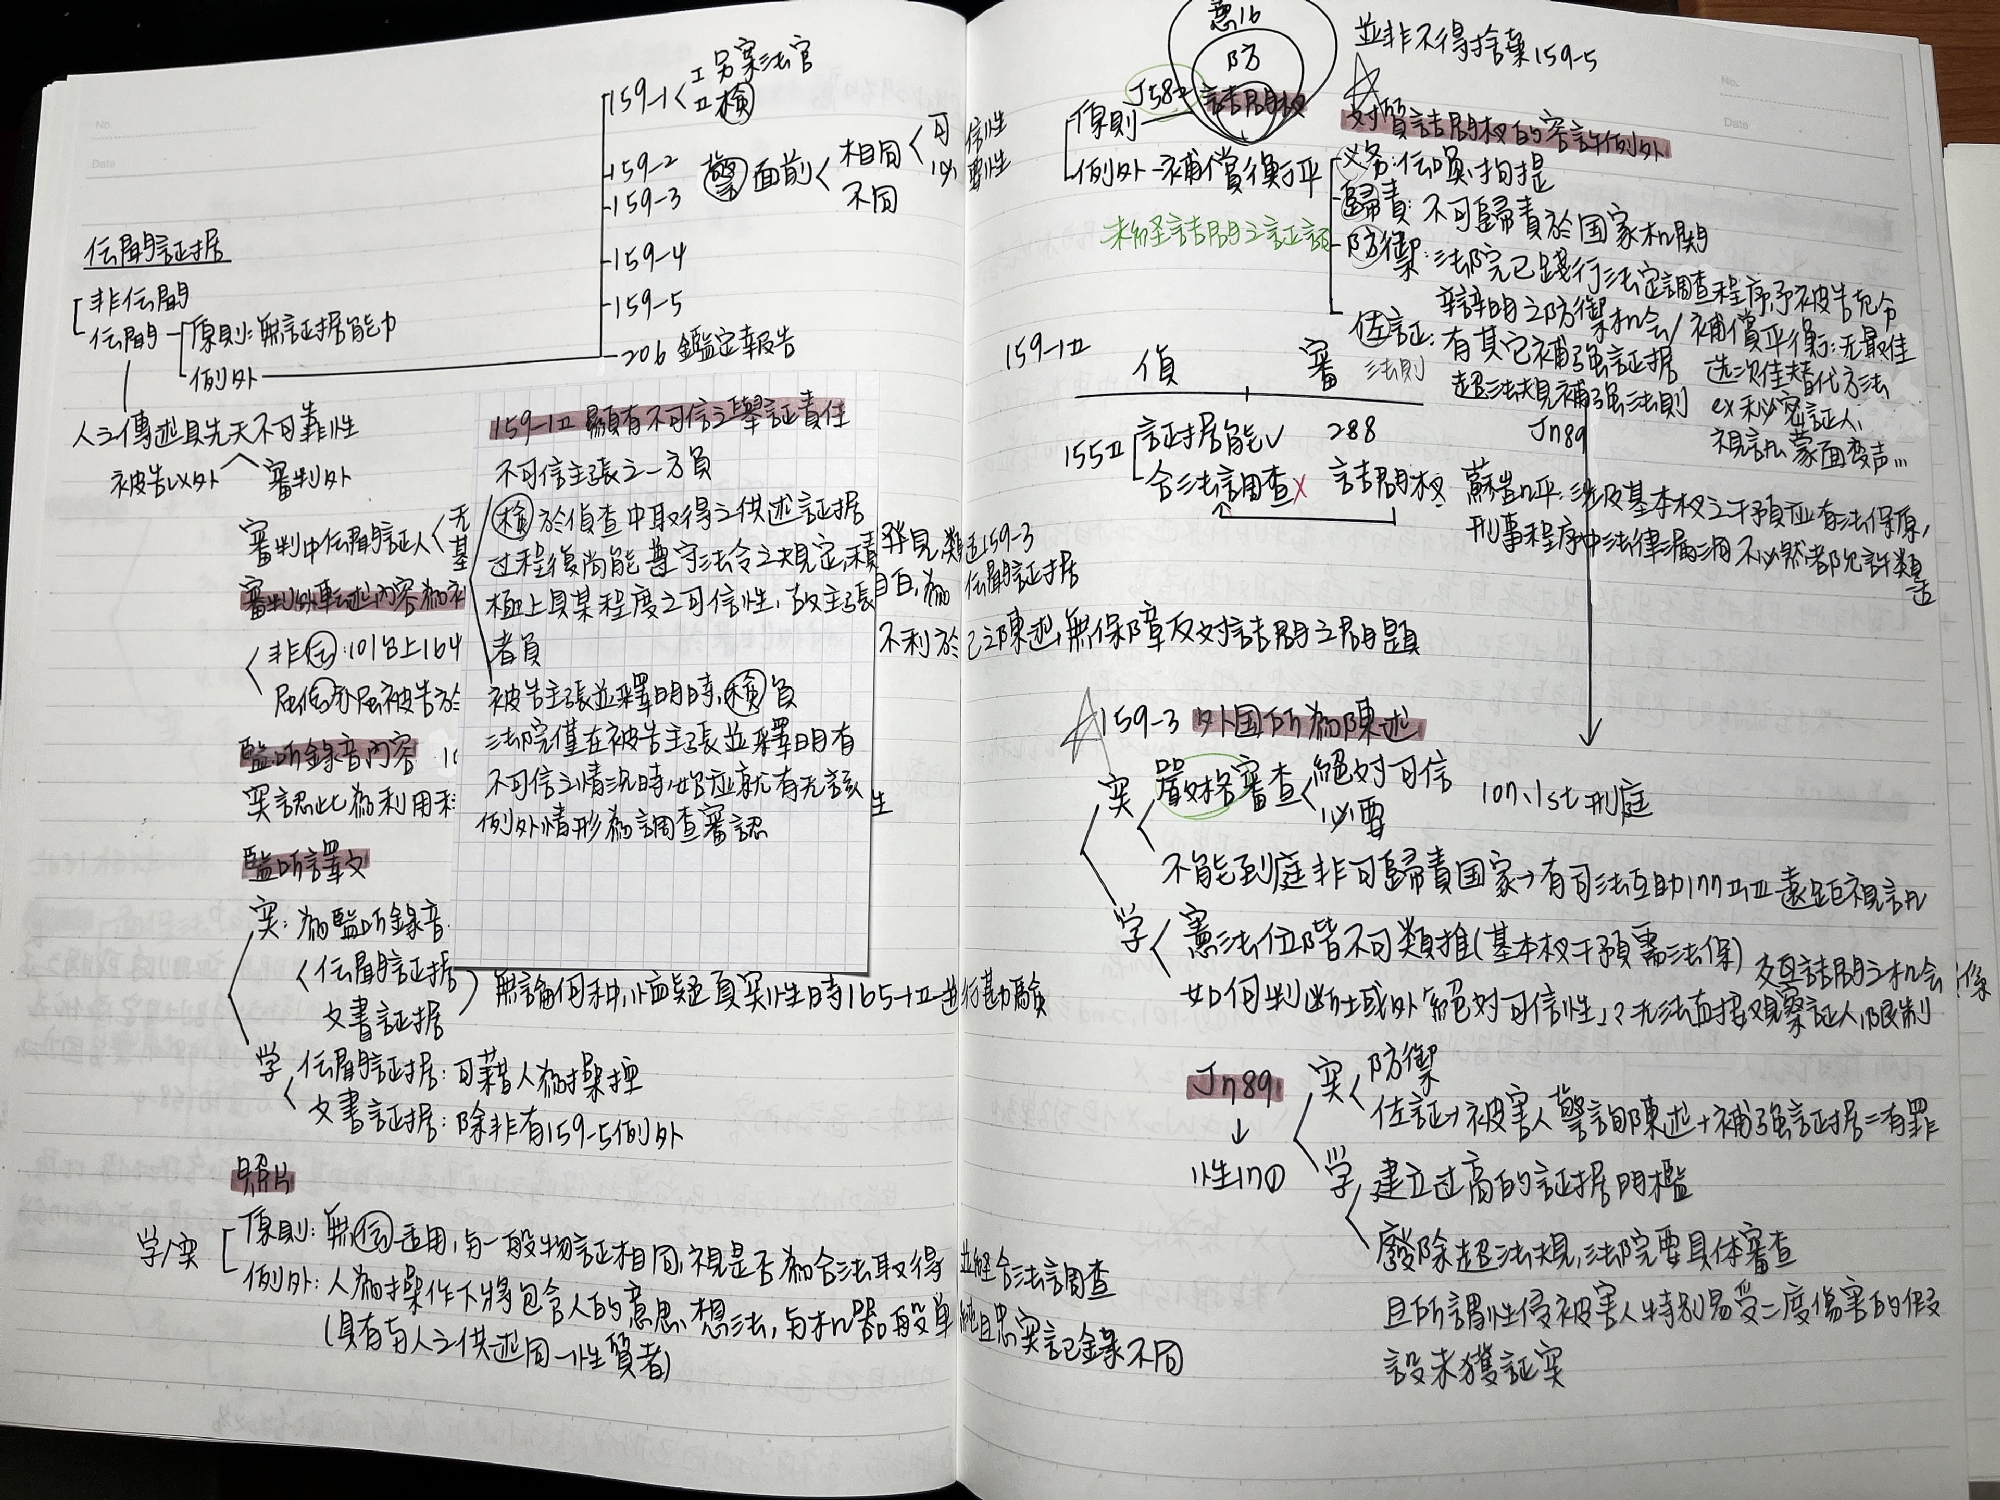 159-1 I 另案法官
II 検
159-2
159-3 警 面前 相同 可信性
必要性
不同
159-4
159-5
206 鑑定報告
伝聞証据
非伝聞
伝聞 原則:無証据能力
例外
人之傳述具先天不可靠性
被告以外 審判外
審判中伝聞証人
審判外転述內容為
非伝:101台上164
屬伝
監听錄音內容
実認此為利用
監听譯文
実:為監听錄音
伝聞証据
文書証据
無論何种,懷疑真实性時165-1II進行勘驗
学 伝聞証据:可藉人為操控
文書証据:除非有159-5例外
照片
学/実 原則:無伝適用,与一般物証相同,視是否為合法取得並經合法調查
例外:人為操作下將包含人的意思、想法,与机器般單純且忠实記錄不同
(具有与人之供述同一性質者)
159-1II 顯有不可信之舉証責任
不可信主張之一方負
検於偵查中取得之供述証据
過程復尚能遵守法令之規定,積
極上具某程度之可信性,故主張
者負
被告主張並釋明時,検負
法院僅在被告主張並釋明有
不可信之情況時,始應就有无該
例外情形為調查審認
159-3
伝聞証据
不利於己之陳述,無保障反对詰問之問題
憲16
防
詰問权
J582
原則
例外-補償衡平
未經詰問之証詞
並非不得捨棄159-5
对質詰問权的容許例外
义务:伝喚、拘提
歸責:不可歸責於国家机関
防禦:法院已踐行法定調查程序予被告充分
辯明之防禦机会/補償平衡:无最佳
選次佳替代方法
ex秘密証人、
視訊、蒙面变声…
佐証:有其它補強証据
超法規補強法則
J789
159-1II
偵 審 法則
155II 証据能✓ 288
合法調查× 詰問权
蘇岂凡平:涉及基本权之干預应有法保原,
刑事程序中法律漏洞不必然都允許類適
159-3 外国所為陳述
実 嚴格審查 絕对可信
必要
107、1st刑庭
不能到庭非可歸責国家→有司法互助177 遠距視訊
学 憲法位階不可類推(基本权干預需法保)
如何判断域外「絕对可信性」?无法直接观察証人、限制
交互詰問之机会
J789
↓
性17①
実 防禦
佐証→被害人警詢陳述+補強証据=有罪
学 建立过高的証据門檻
廢除超法規,法院要具体審查
且所謂性侵被害人特別易受二度傷害的假
設未獲証实